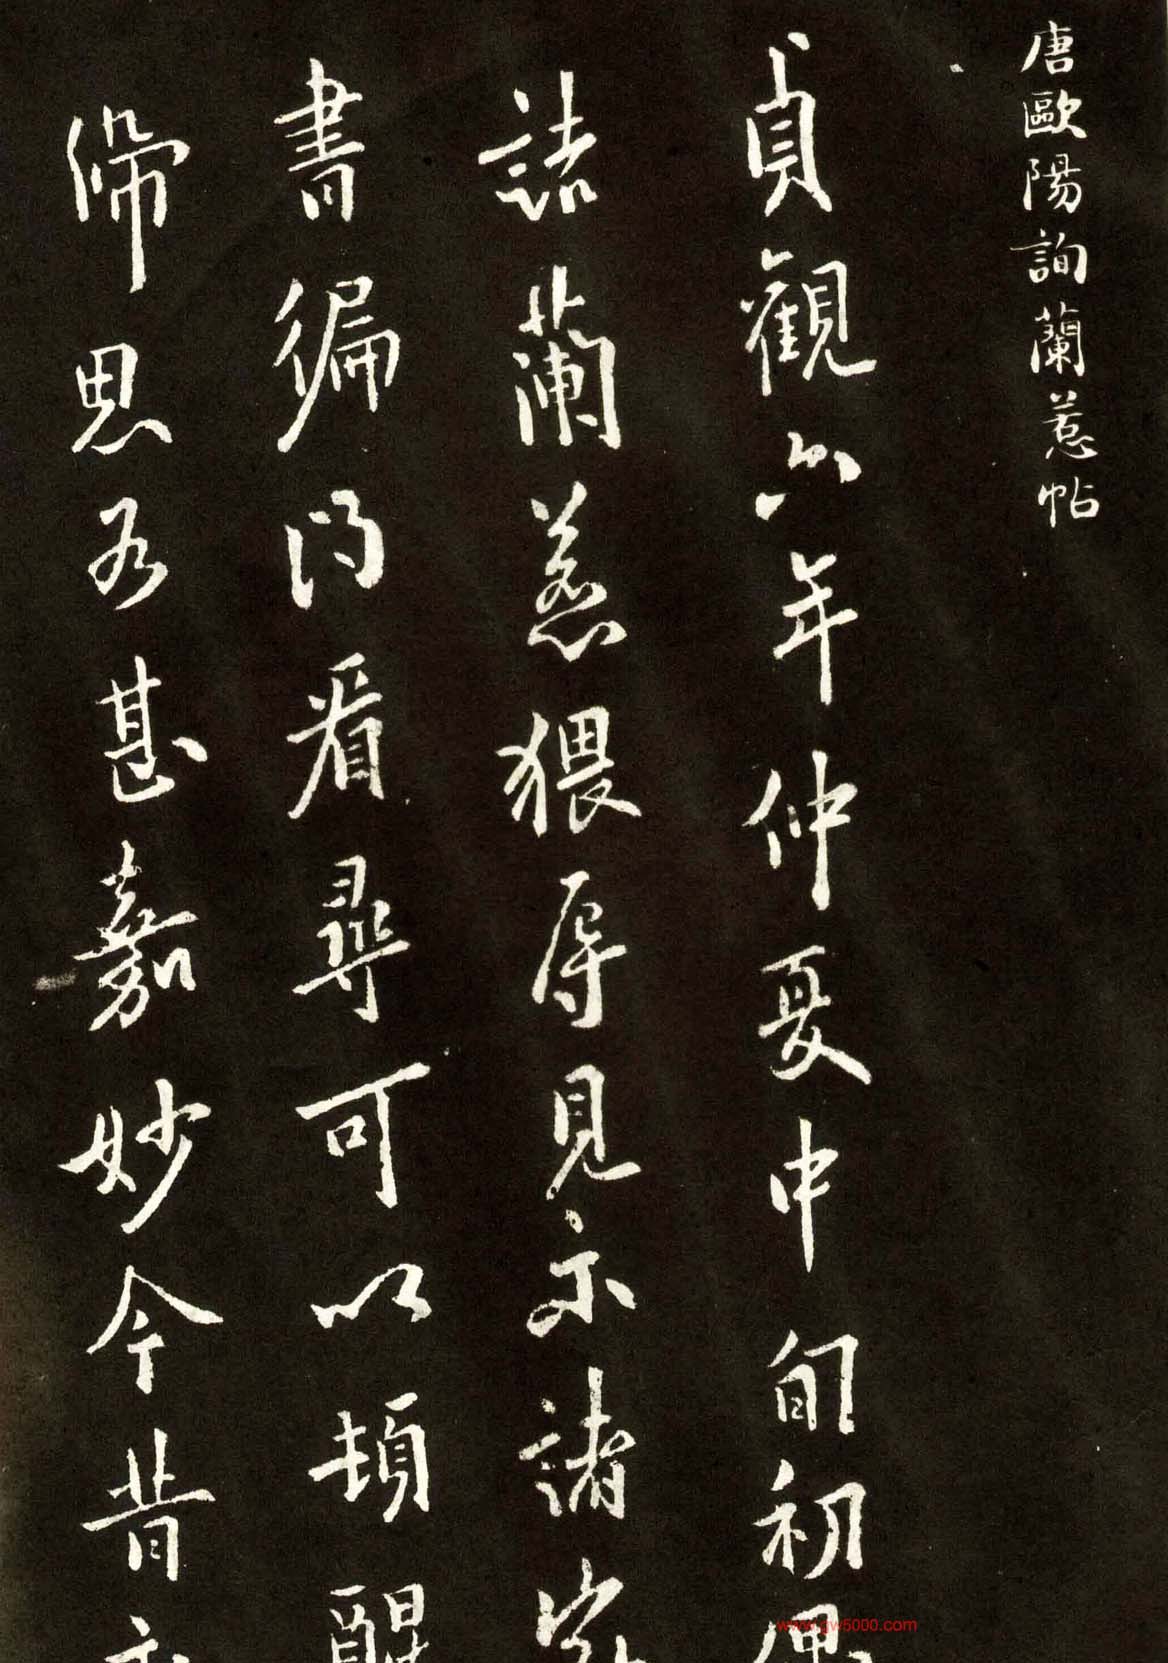 唐歐陽詢蘭惹帖
貞觀六年仲夏中旬初
詰蘭惹猥辱見示諸
書遍得看尋可以頓醒
歸思為甚嘉妙今昔
www.gw5000.com